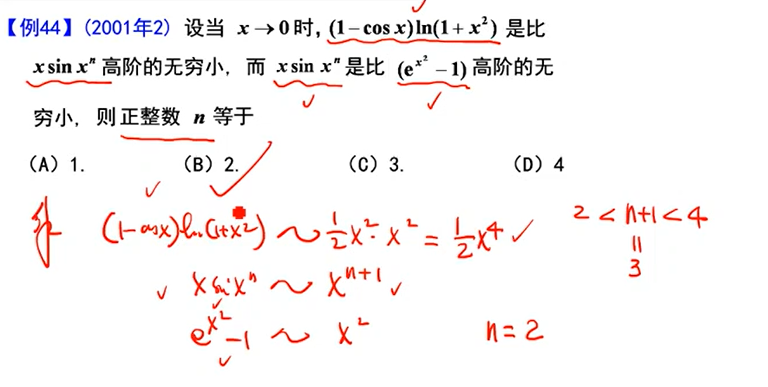 【例44】(2001年2) 设当 x → 0 时, (1－cos x)ln(1＋x²) 是比
x sin xⁿ 高阶的无穷小，而 x sin xⁿ 是比 (e^{x²}－1) 高阶的无
穷小，则正整数 n 等于
(A) 1. (B) 2. (C) 3. (D) 4
解 (1-cosx)ln(1+x²) ~ ½x²·x² = ½x⁴ 2 < n+1 < 4
x sin xⁿ ~ x^{n+1} || 3
e^{x²}-1 ~ x² n=2